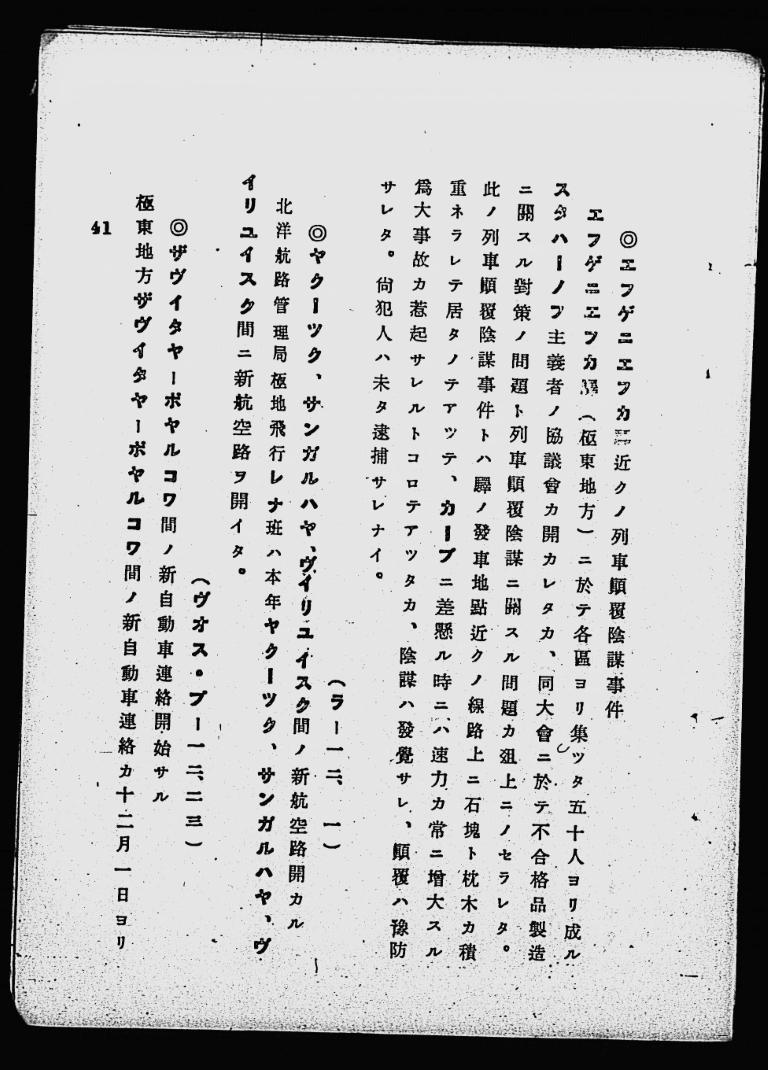 ◎エフゲニエフカ驛近クノ列車顚覆陰謀事件
エフゲニエフカ驛（極東地方）ニ於テ各區ヨリ集ツタ五十人ヨリ成ル
スタハーノフ主義者ノ協議會カ開カレタカ、同大會ニ於テ不合格品製造
ニ關スル對策ノ問題ト列車顚覆陰謀ニ關スル問題カ爼上ニノセラレタ。
此ノ列車顚覆陰謀事件トハ驛ノ發車地點近クノ線路上ニ石塊ト枕木カ積
重ネラレテ居タノテアツテ、カーブニ差懸ル時ニハ速力カ常ニ增大スル
爲大事故カ惹起サレルトコロテアツタカ、陰謀ハ發覺サレ、顚覆ハ豫防
サレタ。尙犯人ハ未タ逮捕サレナイ。
（ラー一二、一）
◎ヤクーツク、サンガルハヤ、ヴイリユイスク間ノ新航空路開カル
北洋航路管理局極地飛行レナ班ハ本年ヤクーツク、サンガルハヤ、ヴ
イリユイスク間ニ新航空路ヲ開イタ。
（ヴオス・プー一二、二三）
◎ザヴイタヤーポヤルコワ間ノ新自動車連絡開始サル
極東地方ザヴイタヤーポヤルコワ間ノ新自動車連絡カ十二月一日ヨリ
41